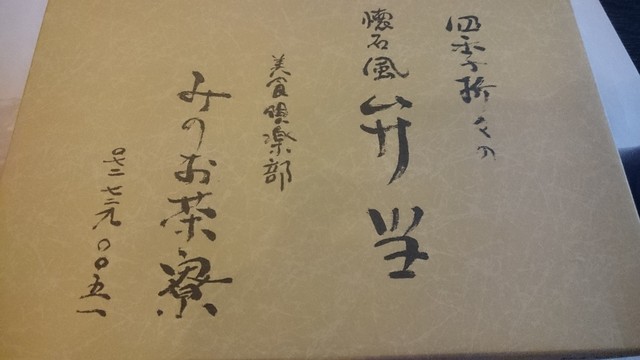 四季折々の
懐石風弁当
美食倶楽部
みのお茶寮
〇七二七二九〇〇五一